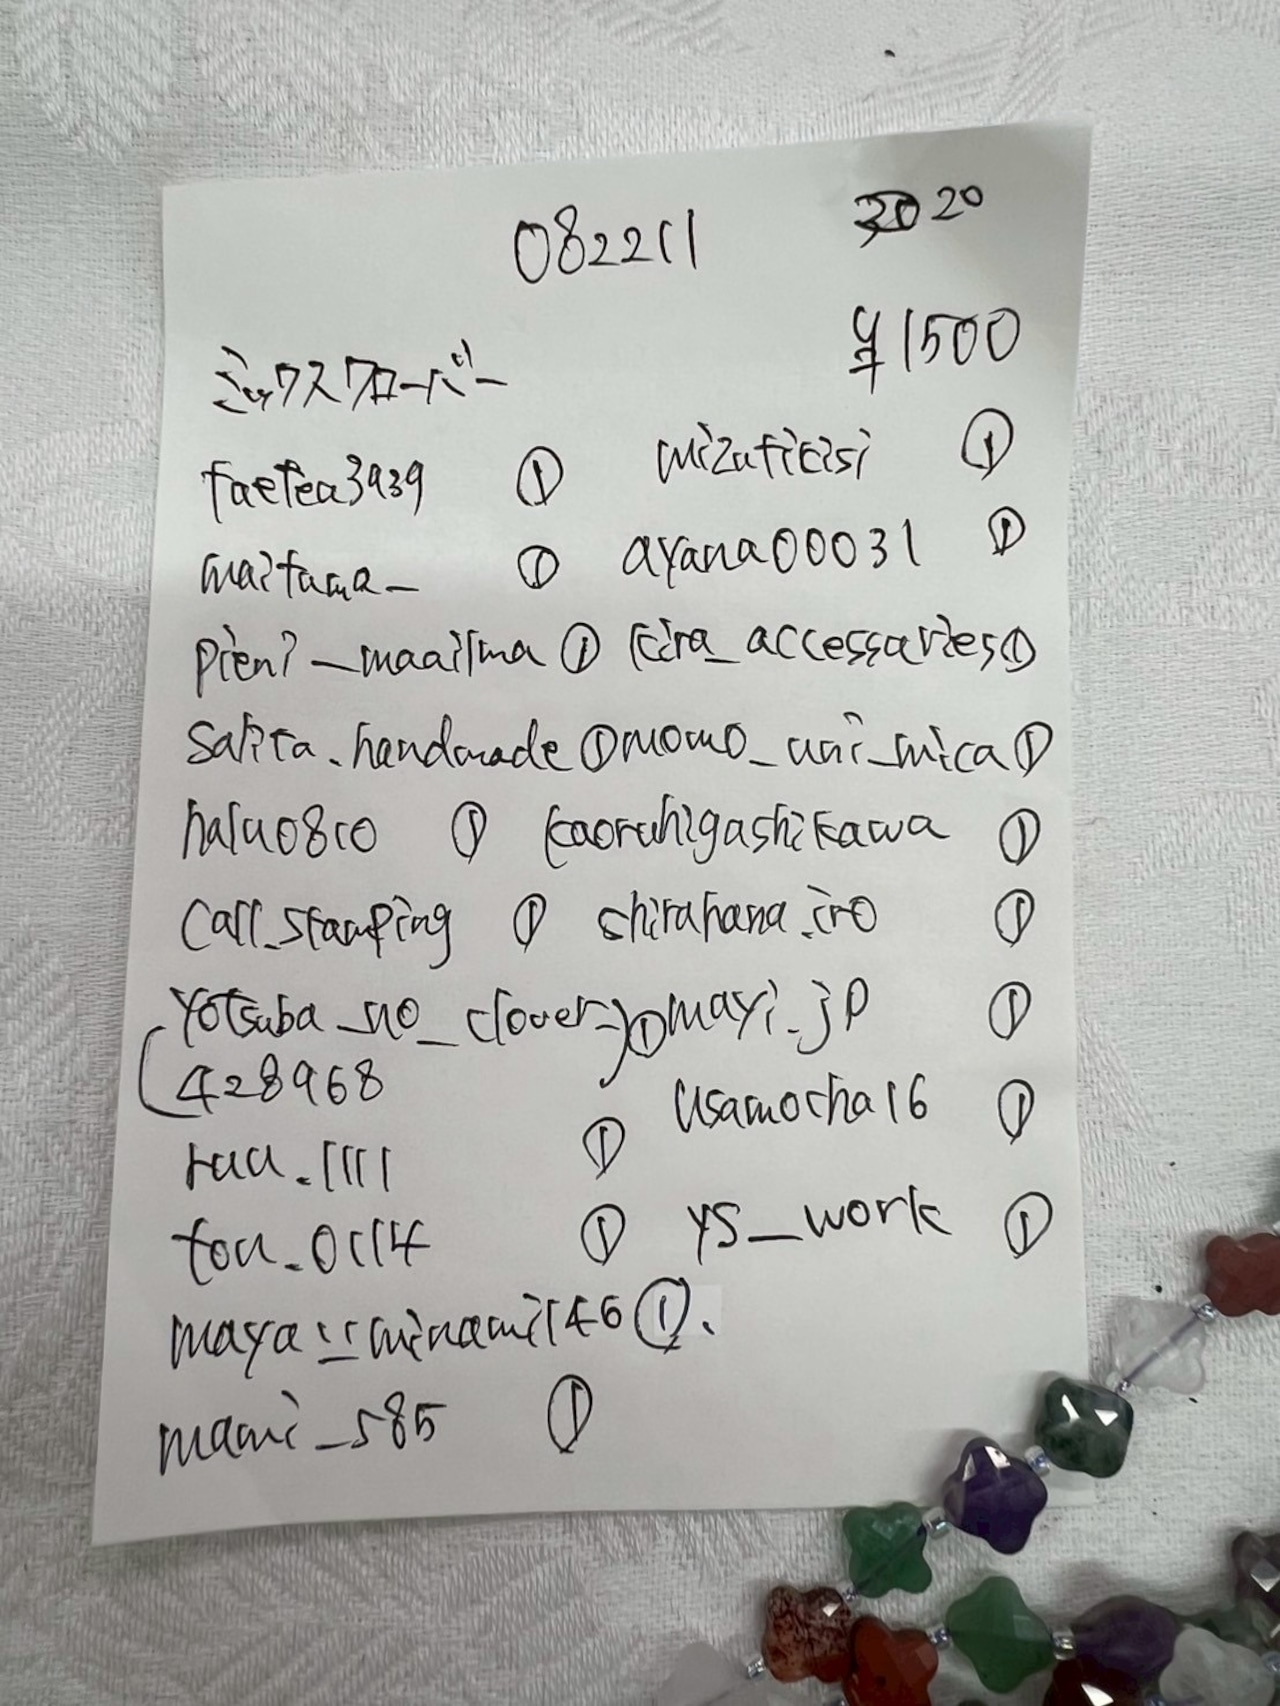 082211
20
¥1500
ミックスクローバー
taetea3939 ① mizutikisi ①
maitama_ ① ayana00031 ①
pieni_maailma ① kira_accessaries ①
salita.handmade ① momo_uni_mica ①
halu0810 ① kaoruhigashikawa ①
call_stamping ① shirahana_iro ①
(yotsuba_no_clover=) ① mayi_jp ①
428968
usamocha16 ①
ruu.1111 ①
tou.0114 ① ys_work ①
maya__minami146 ①.
mami_s85 ①